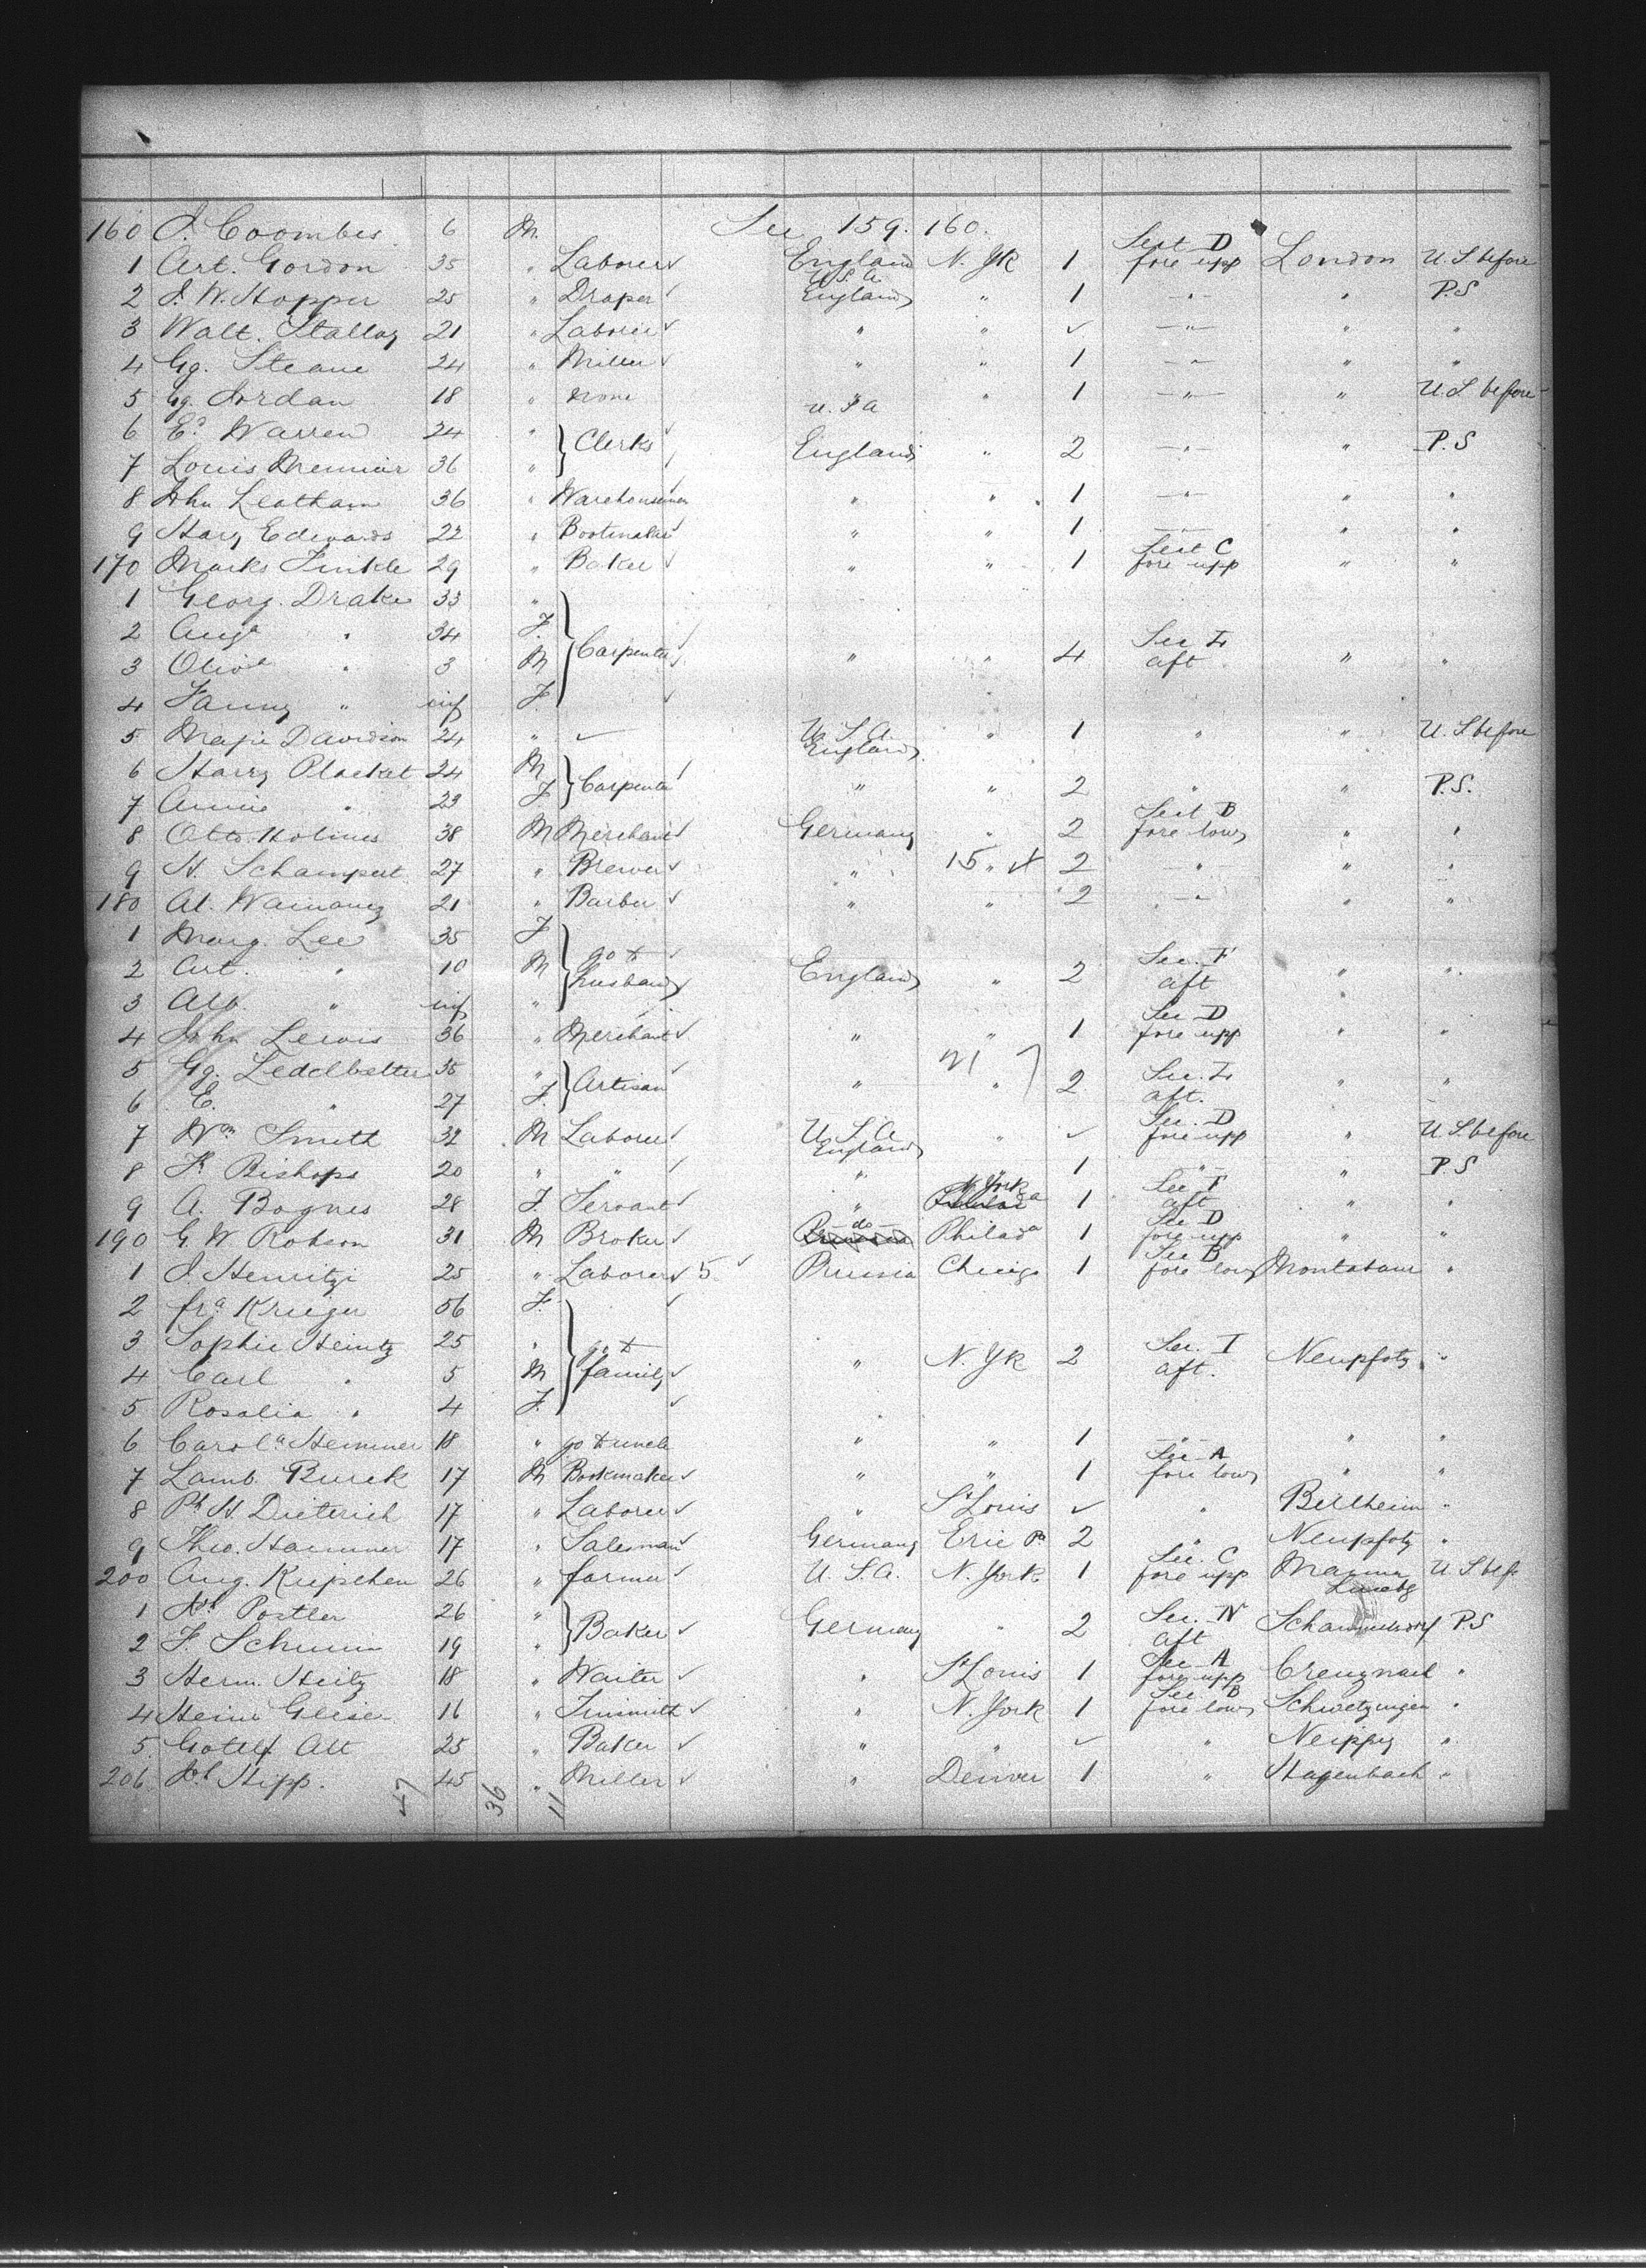 160 J. Coombes 6 M. See 159. 160.
1 Art. Gordon 35 " Laborer England U.S.A. N. Yk 1 Sect D fore upp London U. S before
2 J. W. Hopper 25 " Draper England " 1 " " P.S
3 Walt. 21 " Laborer " " " " "
4 Gg. Steane 24 " Miller " " 1 " " "
5 Gg. Jordan 18 " none U. S a " 1 " " U. S before
6 Ed Warren 24 "
7 Louis 36 " Clerks England " 2 " " P.S
8 John Leatham 36 " Warehouseman " " 1 " " "
9 Harry Edwards 22 " Bootmaker " " 1 " " "
170 Marks Finkle 29 " Baker " " 1 Sect C fore upp " "
1 Georg. Drake 33 "
2 Auga " 34 F.
3 Olive " 3 M Carpenter " " 4 Sec L aft " "
4 Fanny " inf F.
5 Magie Davidson 24 " U. S. A. " 1 " " U. S before
6 Harry Plackat 24 M England
7 Annie " 23 F Carpenter " " 2 " " P.S.
8 Otto Holmes 38 M Merchant Germany " 2 Sect B fore low " "
9 H. Schampert 27 " Brewer " 15 " X 2 " " "
180 Al. 21 " Barber " " 2 " " "
1 Marg. Lee 35 F
2 Art. " 10 M go to husband England " 2 Sec. F aft " "
3 Alb. " inf "
4 John Lewis 36 " Merchant " " 1 Sec D fore upp " "
5 Gg. Leddlbetter 35 " 21 7
6 E. " 27 F. Artisan " " 2 Sec. L aft. " "
7 Wm Smith 32 M Laborer U. S. A " Sec. D fore upp " U. S. before
8 Fk Bishops 20 " " England 1 " " P. S
9 A. Bognes 28 F. Servant " N. York 1 Sec F aft " "
190 G. W Robson 31 M Broker do Philada 1 Sec D fore upp " "
1 J. Henritzi 25 " Laborer 5 Prussia Chicago 1 Sec B fore low Montabaur "
2 fra Krieger 56 F.
3 Sophie Heintz 25 "
4 Carl " 5 M go to family " N. Yk 2 Sec. I aft. Neupfotz "
5 Rosalia " 4 F.
6 Carola Hemmer 18 " go to uncle " " 1 " " "
7 Lamb. Burck 17 M Bookmaker " " 1 Sec A fore low " "
8 Ph H. Dieterich 17 " Laborer " St Louis " Bellheim "
9 Theo. Hammer 17 " Salesman Germany Erie Pa 2 " Neupfotz "
200 Aug. Kiepschen 26 " farmer U. S. A. N. York 1 Sec. C fore upp U. S bef.
1 Postler 26 "
2 F Schumm 19 " Baker Germany " 2 Sec. N aft P S
3 Herm. Heitz 18 " Waiter " St Louis 1 Sec A fore upp Creuznach "
4 Heinr Gleiser 16 " Tinsmith " N. York 1 Sec B fore low Schwetzingen "
5 Gotlf Alt 25 " Baker " " " "
206 Hipp. 45 " Miller " Denver 1 " Hagenbach "
47 36 11